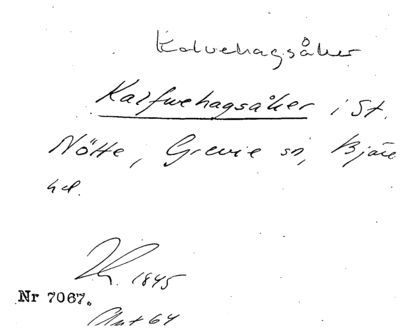 Kalvehagsåker
Kalfwehagsåker i St.
Nötte, Grevie sn, Bjäre
hd.
1845
Nr 7067.
Akt 64